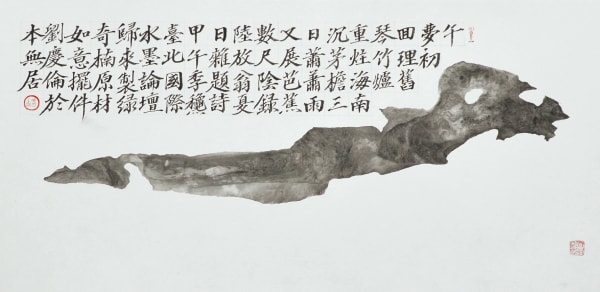 午
夢初
回理舊
琴竹爐
重炷海南
沉茅檐三
日蕭蕭雨
又展芭蕉
數尺陰錄
陸放翁夏
日雜題詩
甲午季穐
臺北國際
水墨論壇
歸來製綠
奇楠原材
如意擺件
劉慶倫於
本無居